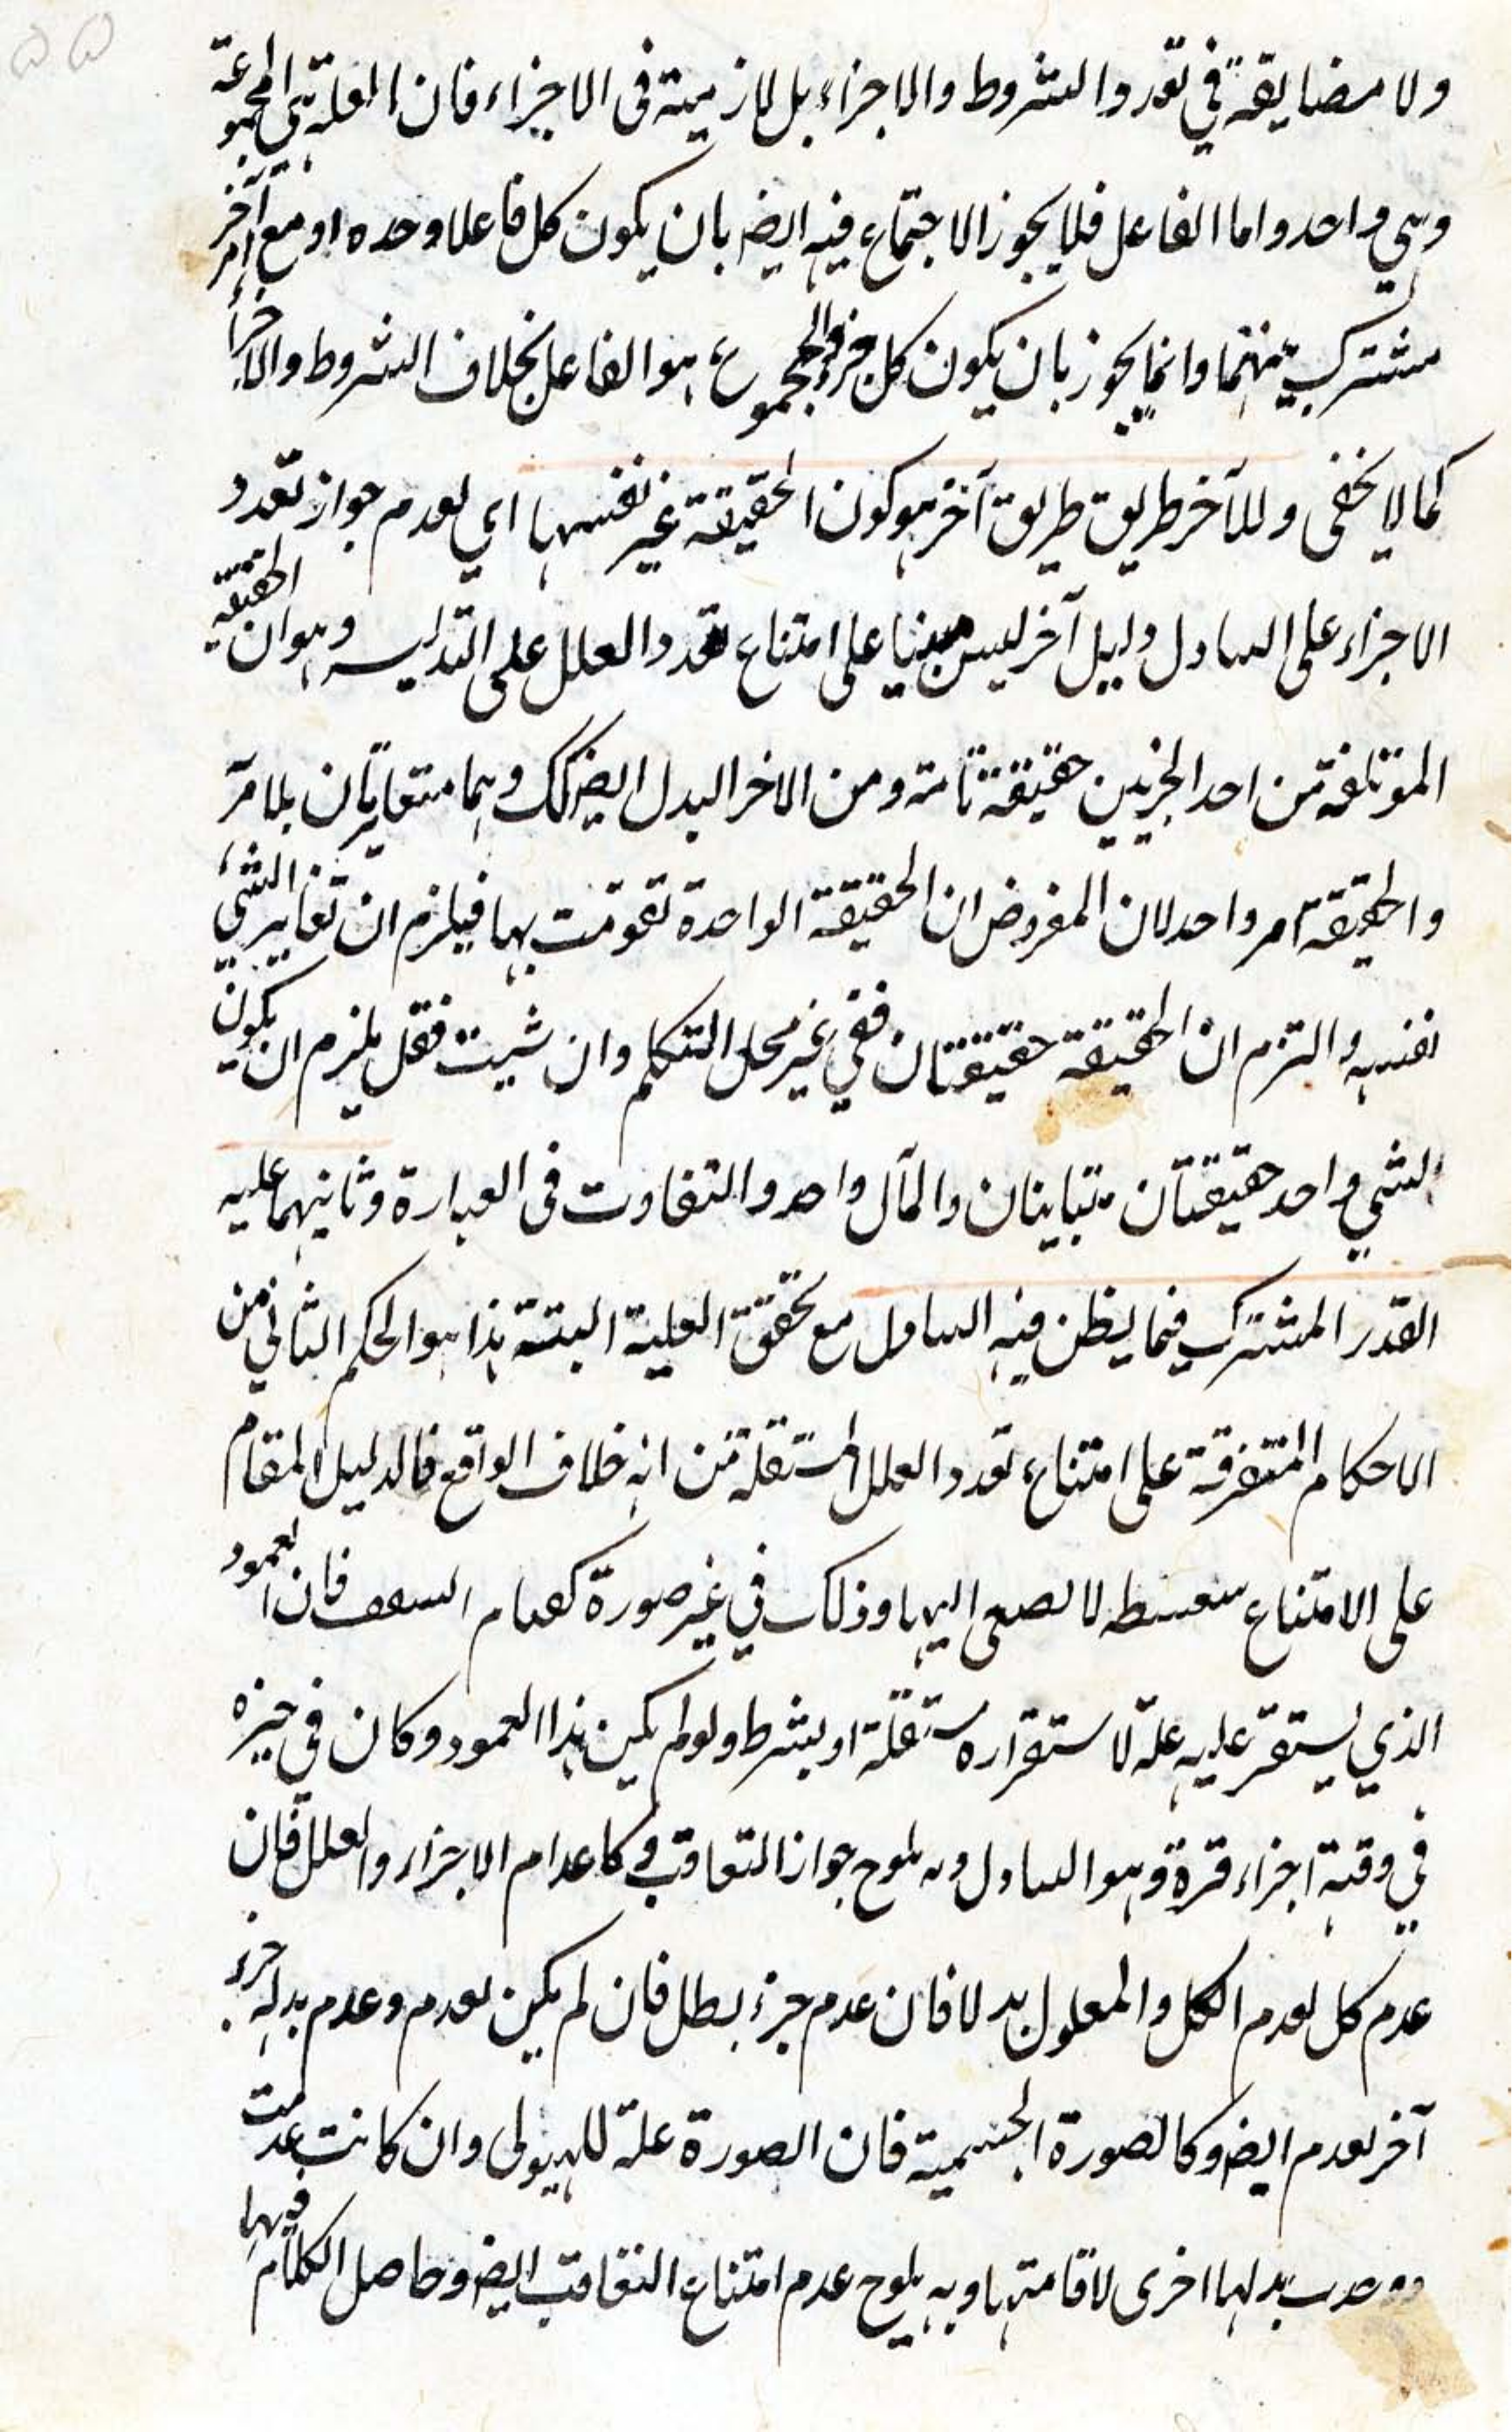 ولا مضايقة في تعدد الشروط والاجزاء بل لازمية فى الاجزاء فان العلة هى المجموعة
وهي واحد واما الفاعل فلا يجوز الاجتماع فيه ايضا بان يكون كل فاعلا وحده او مع آخر
مشترك بينهما وانما يجوز بان يكون كل جزء والمجموع هو الفاعل بخلاف الشروط والاجزاء
كما لا يخفى وللآخر طريق طريق آخر هو كون الحقيقة غير نفسها اي لعدم جواز تعدد
الاجزاء على التبادل دليل آخر ليس مبنيا على امتناع تعدد العلل على التبادل وهو ان الحقيقة
المؤتلفة من احد الجزئين حقيقة تامة ومن الاخر البدل ايضا كك وهما متغايرتان بلا مرآ
والحقيقة امر واحد لان المفروض ان الحقيقة الواحدة تقومت بهما فيلزم ان تغاير الشيء
نفسه والتزم ان الحقيقة حقيقتان ففي غير محل التكلم وان شيت فقل يلزم ان يكون
الشي واحد حقيقتان متباينان والمآل واحد والتفاوت فى العبارة وثانيهما علية
القدر المشترك فيما يظن فيه التبادل مع تحقق العلية البتة هذا هو الحكم الثاني من
الاحكام المتفرقة على امتناع تعدد العلل المستقلة من انه خلاف الواقع فالدليل المقام
على الامتناع سفسطه لا يصغى اليها وذلك في غير صورة كقيام السقف فان العمود
الذي يستقر عليه علة لاستقراره مستقلة او بشرط ولو لم يكن هذا العمود وكان في حيزه
في وقته اجزاء قرة وهو التبادل وبه يلوح جواز التعاقب وكاعدام الاجزاء والعلل فان
عدم كل لعدم الكل والمعلول بدلا فان عدم جزء بطل فان لم يكن لعدم وعدم بدله جزء
آخر لعدم ايضا وكالصورة الجسمية فان الصورة علة للهيولى وان كانت عدمت
ووجدت بدلها اخرى لاقامتها وبه يلوح عدم امتناع التعاقب ايضا وحاصل الكلام فيها